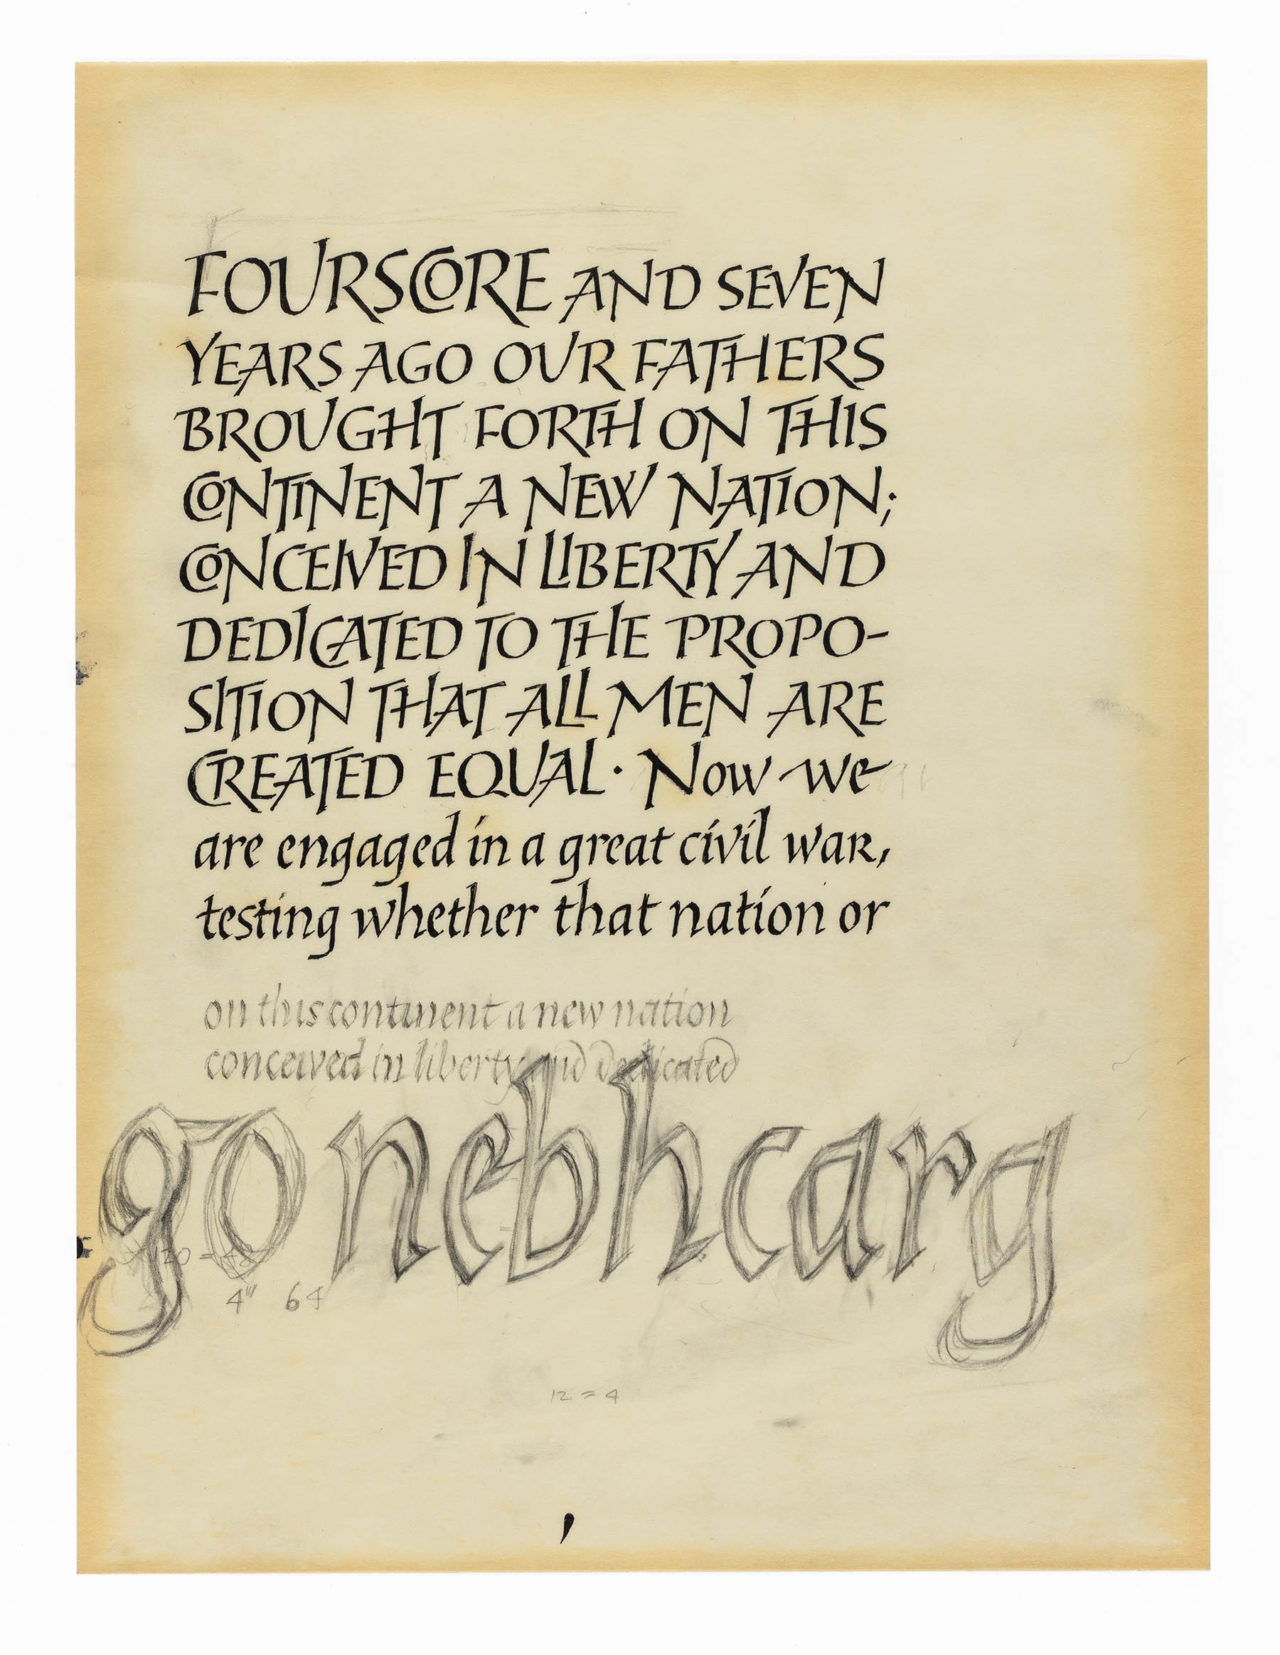 FOURSCORE AND SEVEN
YEARS AGO OUR FATHERS
BROUGHT FORTH ON THIS
CONTINENT A NEW NATION;
CONCEIVED IN LIBERTY AND
DEDICATED TO THE PROPO-
SITION THAT ALL MEN ARE
CREATED EQUAL · Now we
are engaged in a great civil war,
testing whether that nation or
on this continent a new nation
conceived in liberty and dedicated
gonebhcarg
4" 64
12 = 4
,